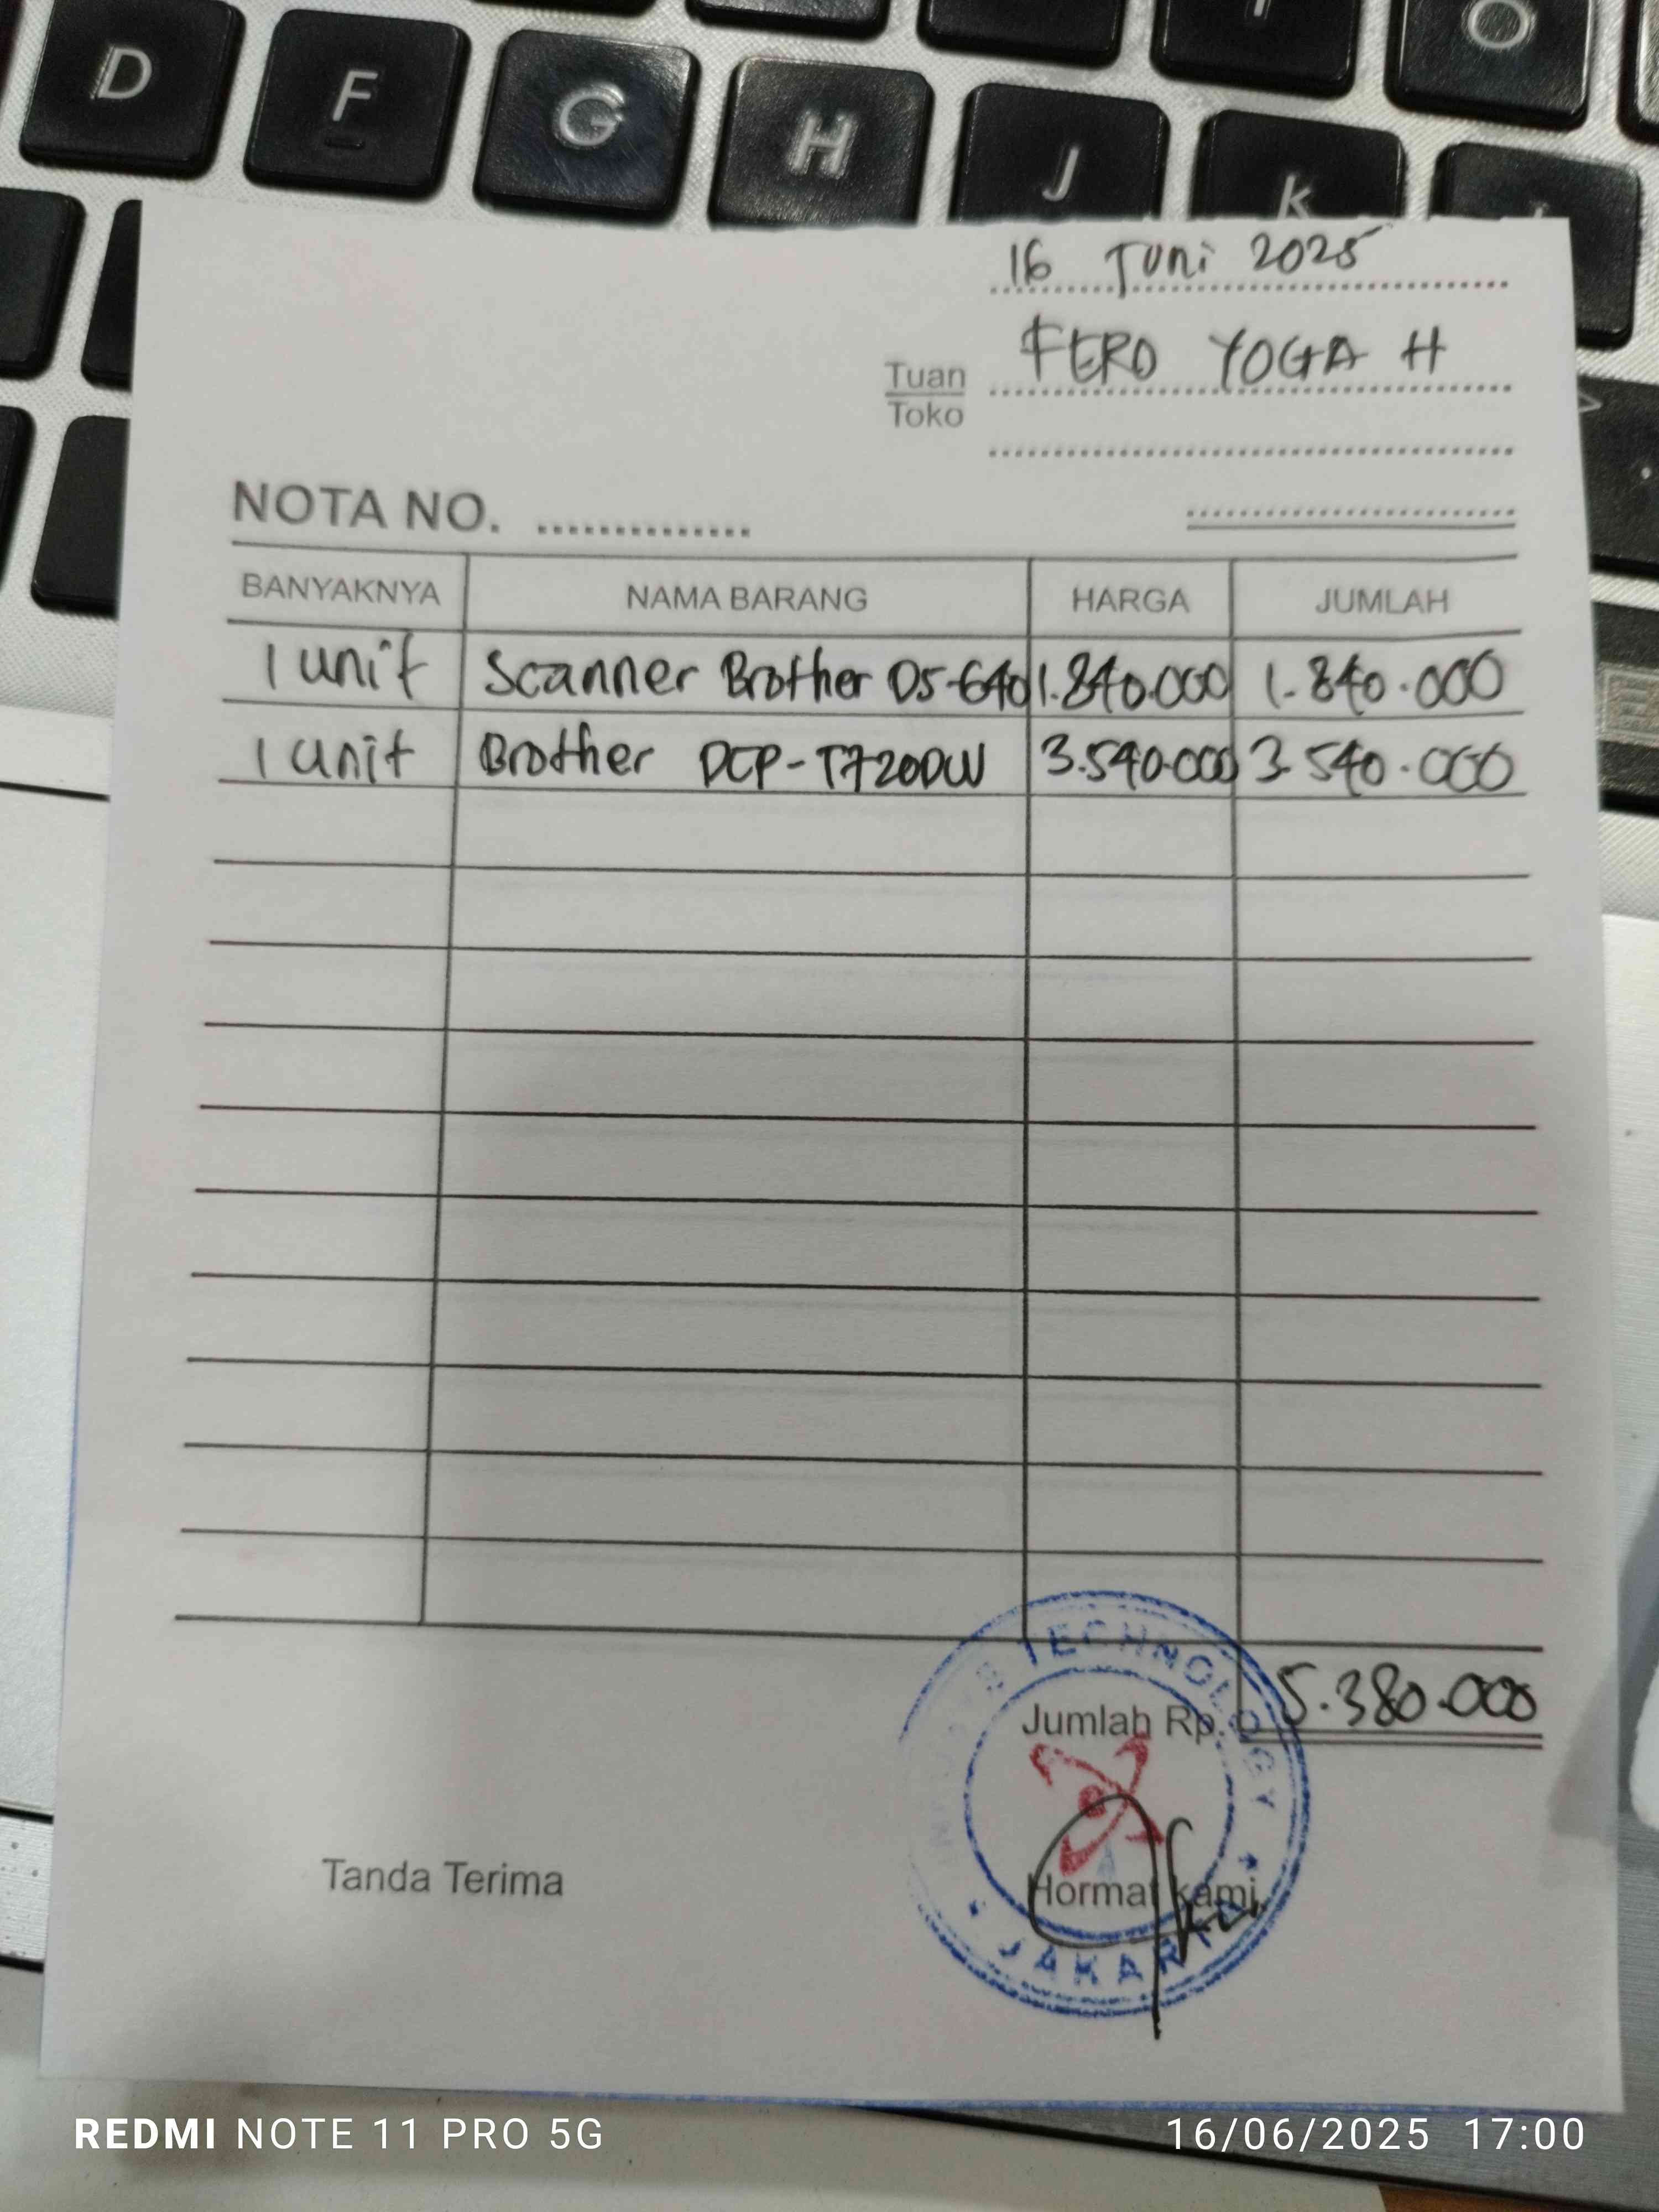 D F G H J K O
16 Juni 2025
Tuan FERO YOGA H
Toko
NOTA NO. ..............
BANYAKNYA NAMA BARANG HARGA JUMLAH
1 unit Scanner Brother DS-640 1.840.000 1.840.000
1 unit Brother DCP-T720DW 3.540.000 3.540.000
Jumlah Rp. 5.380.000
TECHNOLOGY
Tanda Terima Hormat kami,
JAKARTA
REDMI NOTE 11 PRO 5G 16/06/2025 17:00